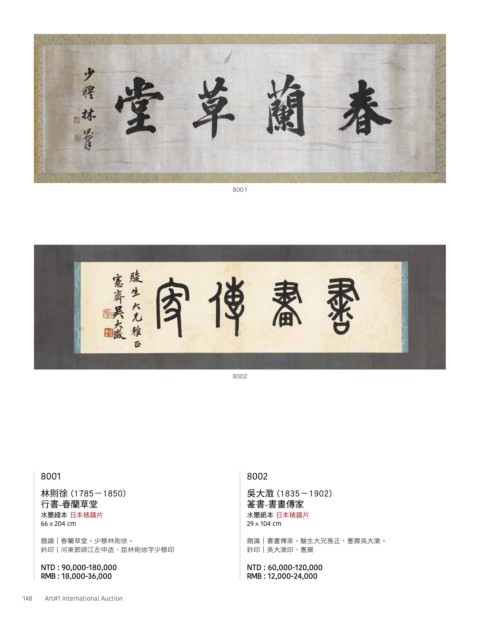 春蘭草堂
少穆林則徐
8001
書畫傳家
駿生大兄雅正
愙齋吳大澂
8002
8001
林則徐（1785－1850）
行書-春蘭草堂
水墨綾本 日本裱鏡片
66 x 204 cm
題識｜春蘭草堂。少穆林則徐。
鈐印｜河東節帥江左中丞、臣林則徐字少穆印
NTD : 90,000-180,000
RMB : 18,000-36,000
8002
吳大澂（1835－1902）
篆書-書畫傳家
水墨紙本 日本裱鏡片
29 x 104 cm
題識｜書畫傳家。駿生大兄雅正，愙齋吳大澂。
鈐印｜吳大澂印、愙齋
NTD : 60,000-120,000
RMB : 12,000-24,000
148 Art#1 International Auction